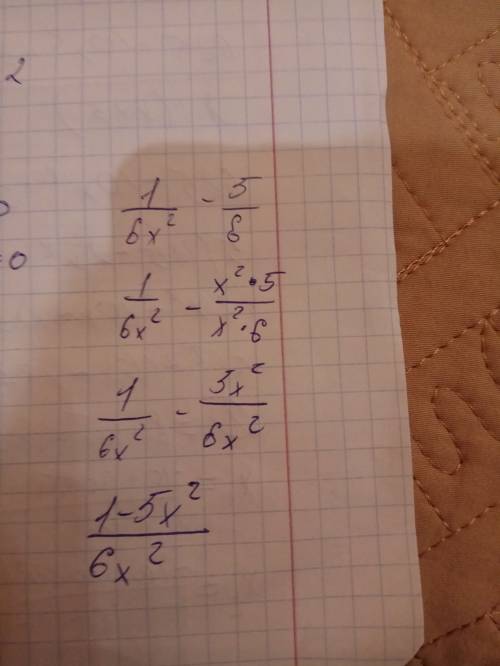 2
0
=0
1/6x² - 5/6
1/6x² - x²·5/x²·6
1/6x² - 5x²/6x²
1-5x²/6x²